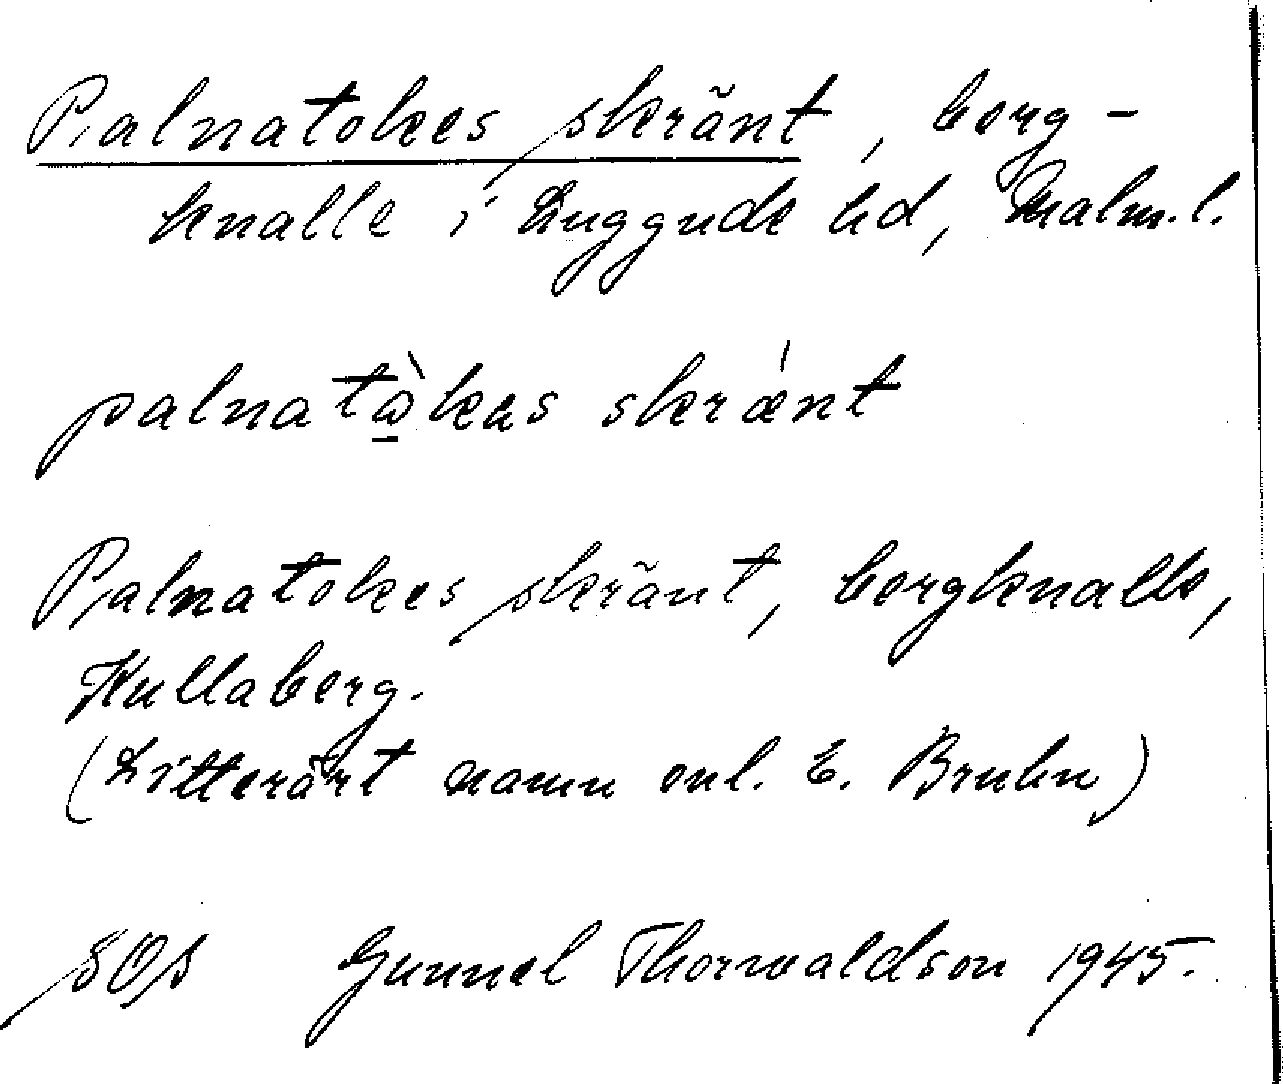 Palnatokes skränt, berg-
knalle i Luggude hd, Malm.l.
palnatὼ̲kas skrǽnt
Palnatokes skränt, bergknalle,
Kullaberg.
(Litterärt namn enl. E. Bruhn)
SOS Gunnel Thorwaldson 1945.